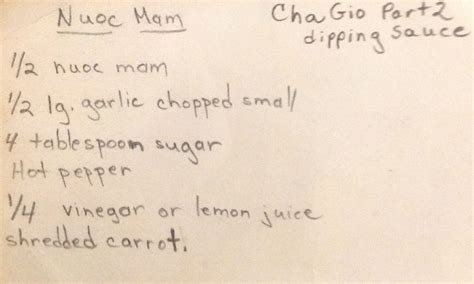 Nuoc Mam
Cha Gio Part 2
dipping sauce
1/2 nuoc mam
1/2 lg. garlic chopped small
4 tablespoon sugar
Hot pepper
1/4 vinegar or lemon juice
shredded carrot.